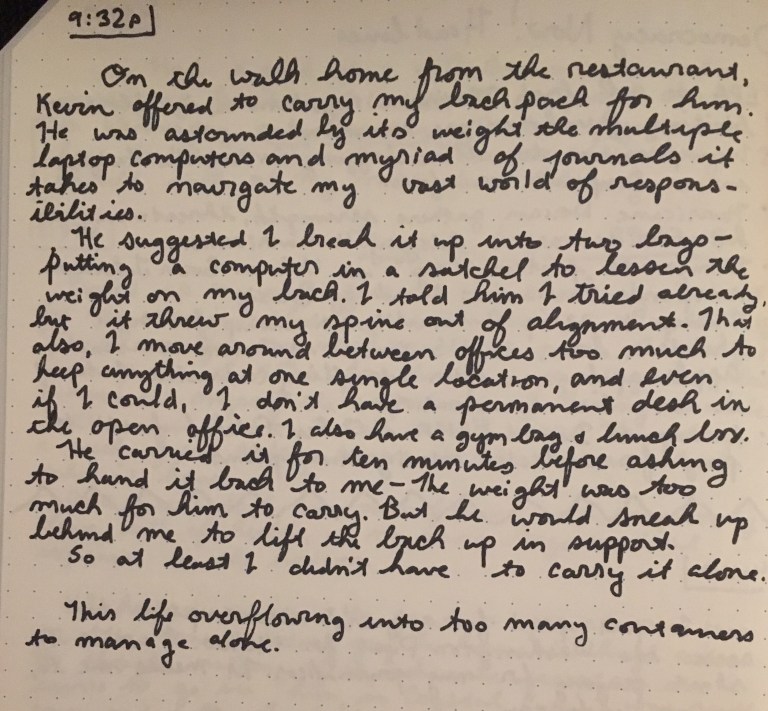 9:32p
On the walk home from the restaurant,
Kevin offered to carry my backpack for him.
He was astounded by its weight the multiple
laptop computers and myriad of journals it
takes to navigate my vast world of respons-
ibilities.
He suggested I break it up into two bags-
putting a computer in a satchel to lessen the
weight on my back. I told him I tried already,
but it threw my spine out of alignment. That
also, I move around between offices too much to
keep anything at one single location, and even
if I could, I don't have a permanent desk in
the open office. I also have a gym bag & lunch box.
He carried it for ten minutes before asking
to hand it back to me - the weight was too
much for him to carry. But he would sneak up
behind me to lift the back up in support.
So at least I didn't have to carry it alone.
This life overflowing into too many containers
to manage alone.